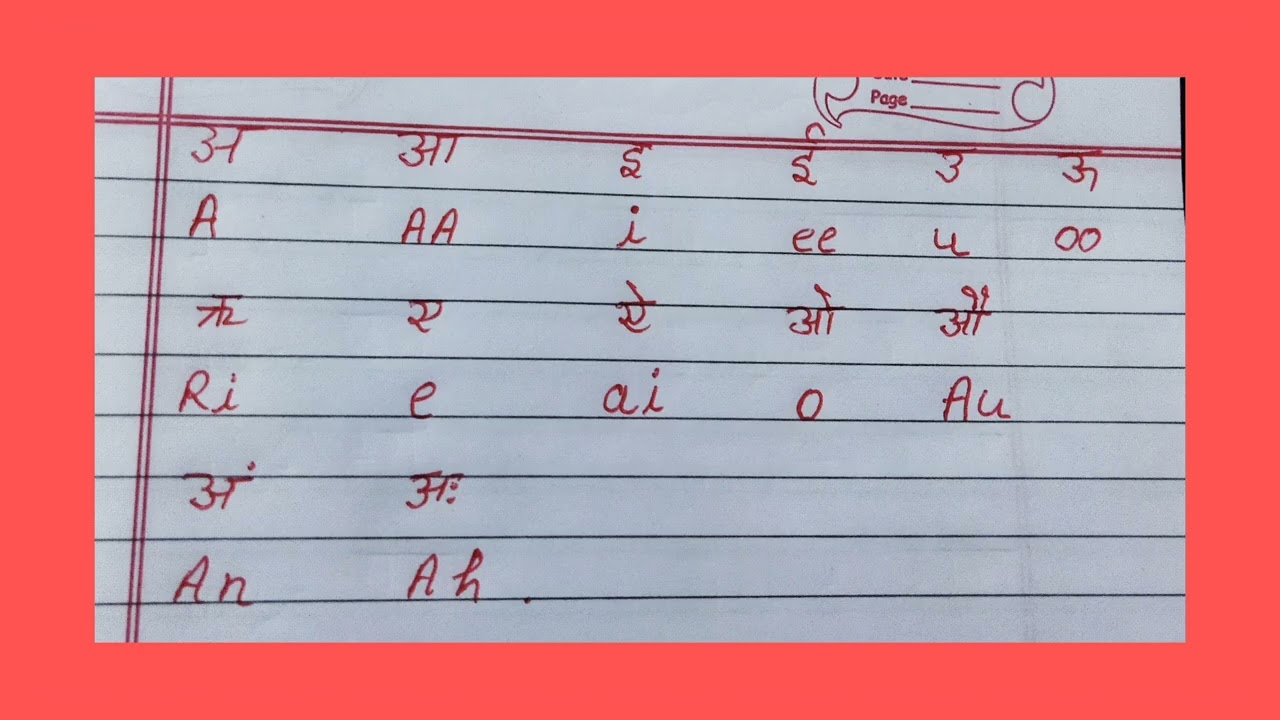 Page
अ आ इ ई उ ऊ
A AA i ee u oo
ऋ ए ऐ ओ औ
Ri e ai o Au
अं अः
An Ah .